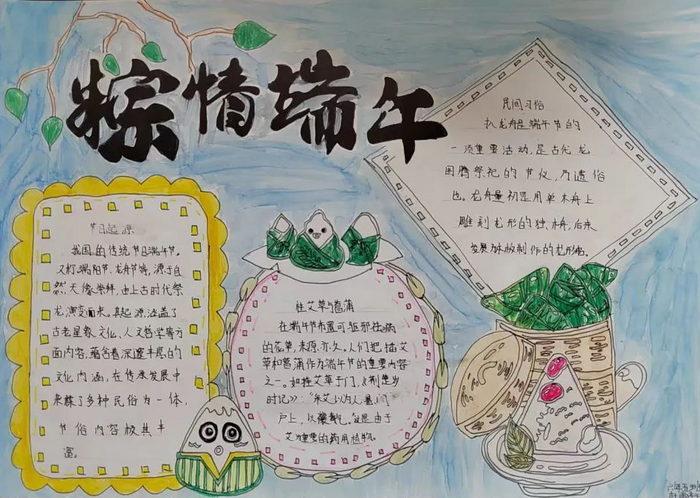 粽情端午
节日起源
我国的传统节日端午节。
又称端阳节、龙舟节等,源于自
然天
龙演变而来。其起源涵盖了
古老星象文化、人文哲学等方
面内容,蕴含着深邃丰厚的
文化内涵,在传承发展中
杂糅了多种民俗为一体,
节俗内容极其丰
富。
挂艾草与菖蒲
在端午节
的花草,
草和菖蒲作为端午节的重要内容
之一。
时记》:“采艾以为人,悬门
户上,以禳毒气。”
艾
的药用植物。
民间习俗
扒龙舟是端午节的
一项重要活动,是古代龙
图腾祭祀的节仪,乃遗俗
也。龙舟最初是用单木舟上
雕刻龙形的独木舟,后来
发展
制作的龙形船。